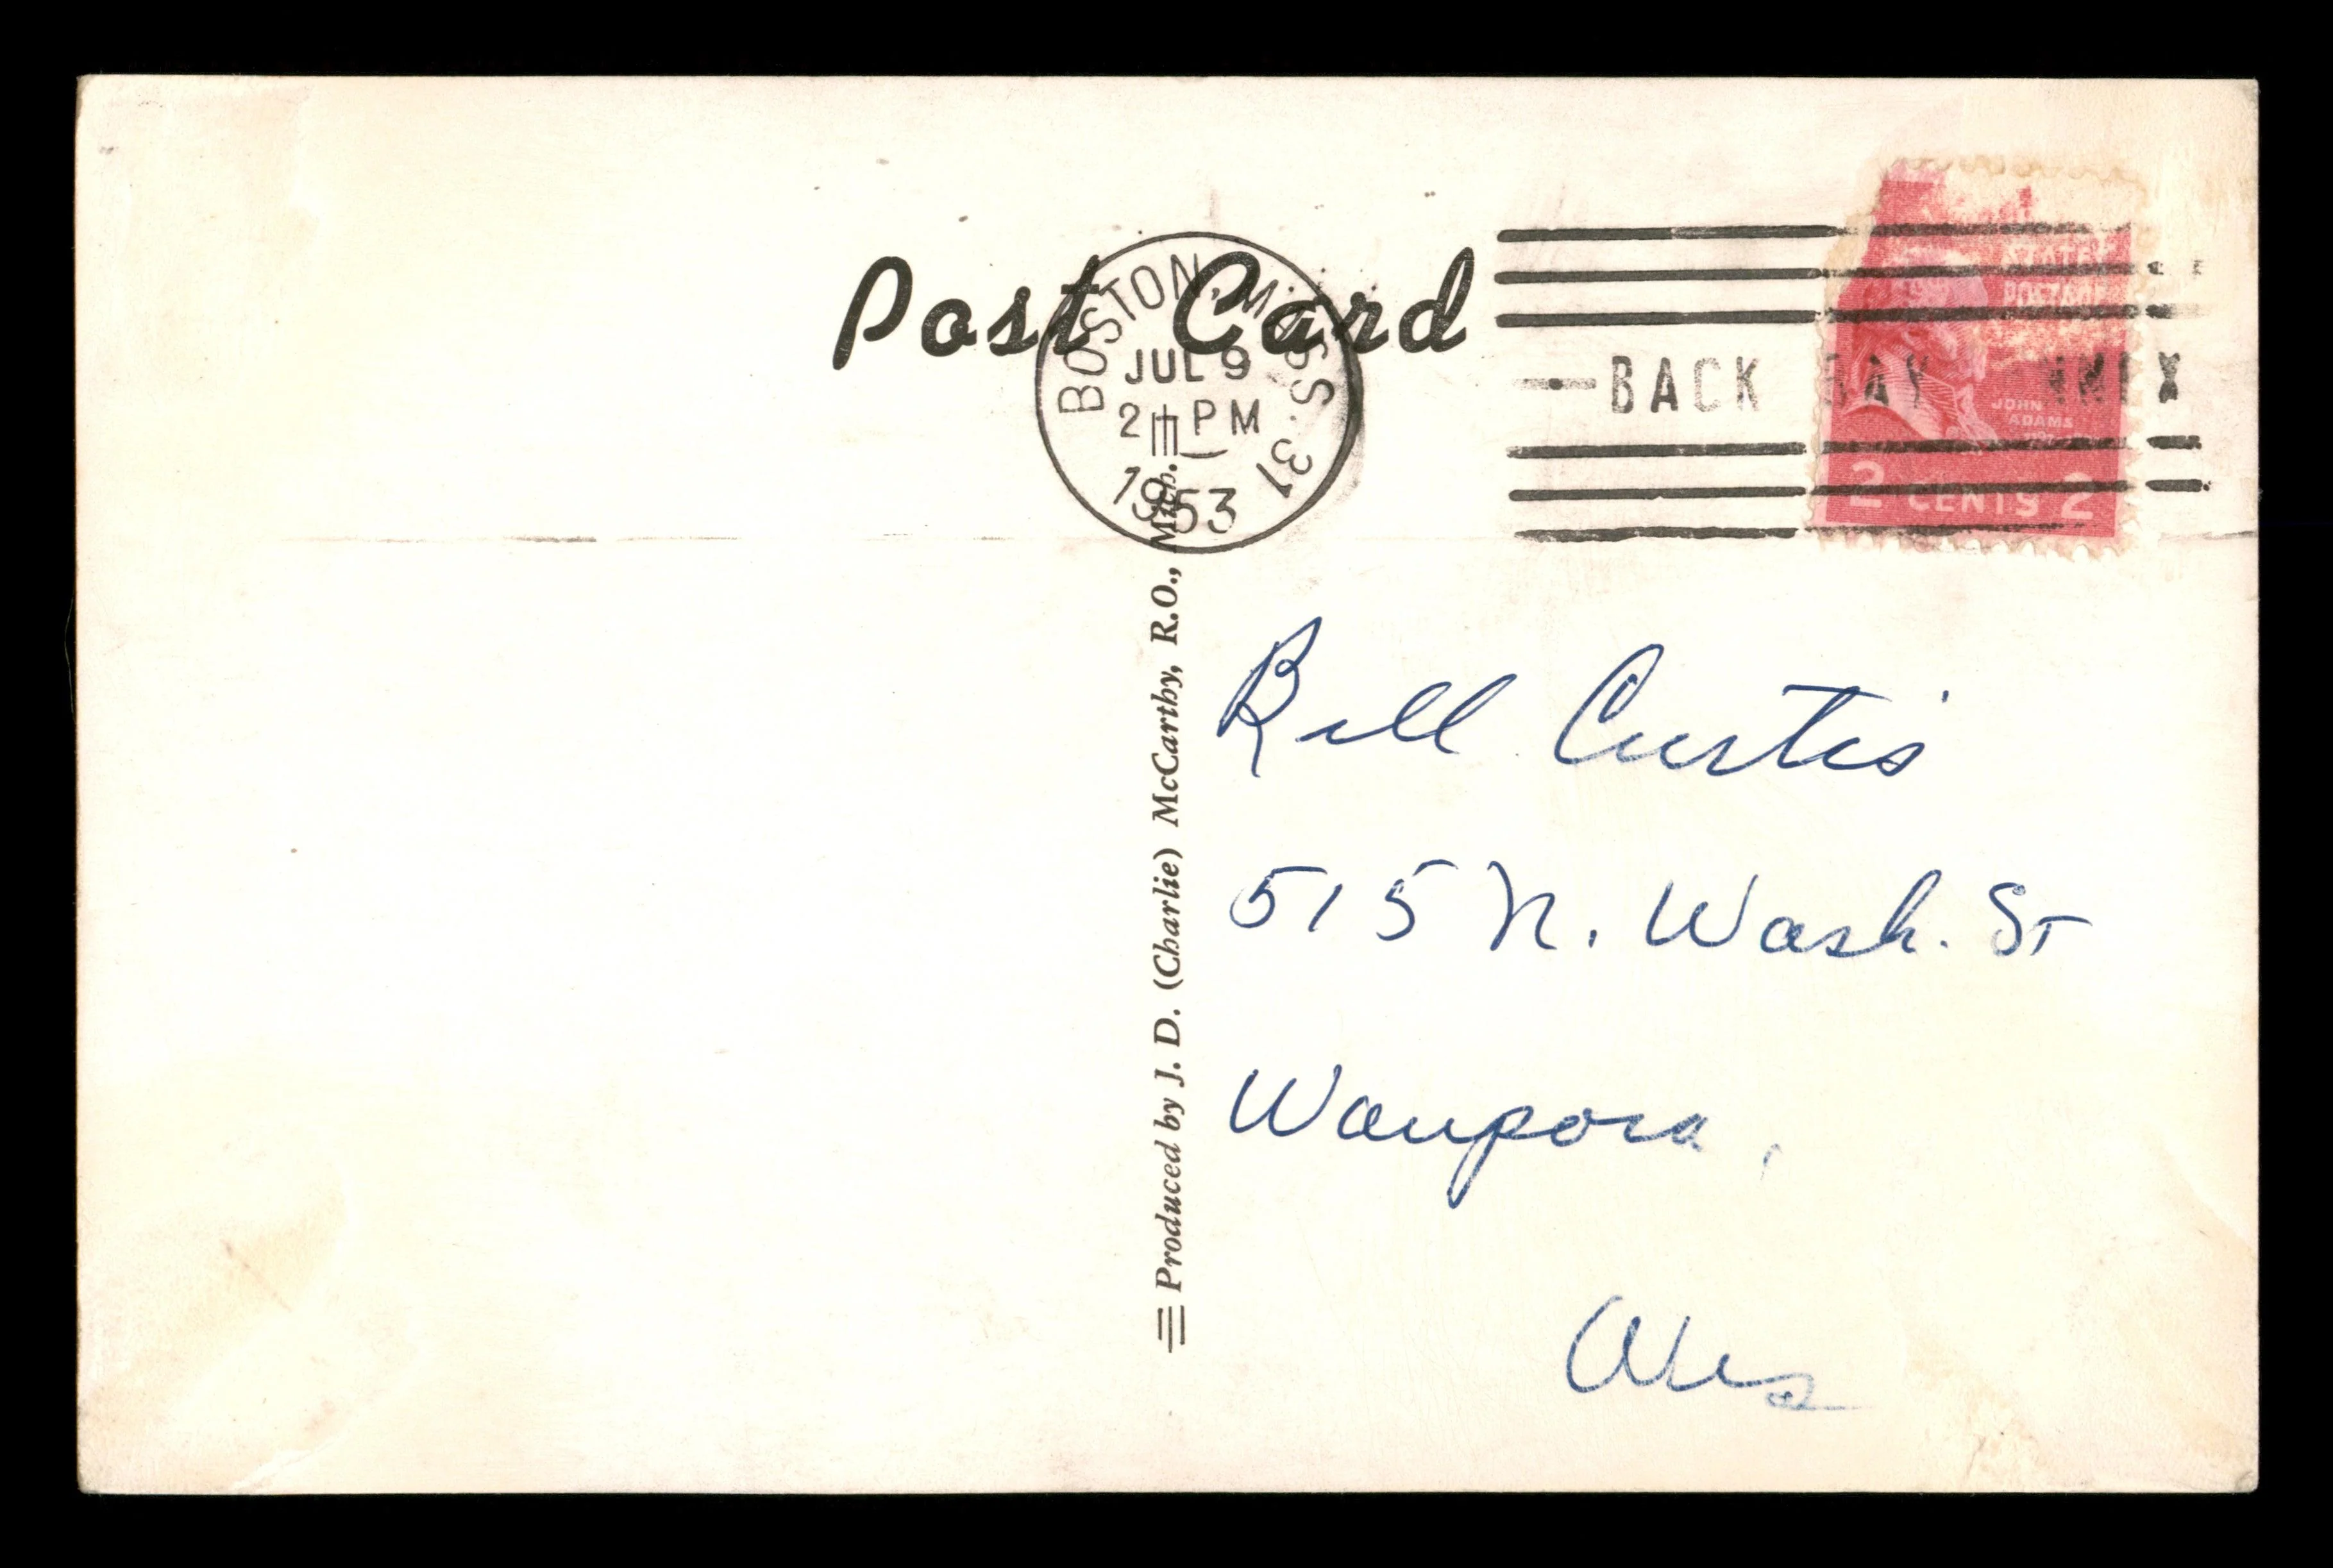 Post Card
BOSTON, MASS. 31
JUL 9
2 PM
1953
BACK BAY ANNEX
STATES
POSTAGE
JOHN
ADAMS
2 CENTS 2
Produced by J. D. (Charlie) McCarthy, R.O., Mich.
Bill Curtis
515 N. Wash. St
Waupaca,
Wis